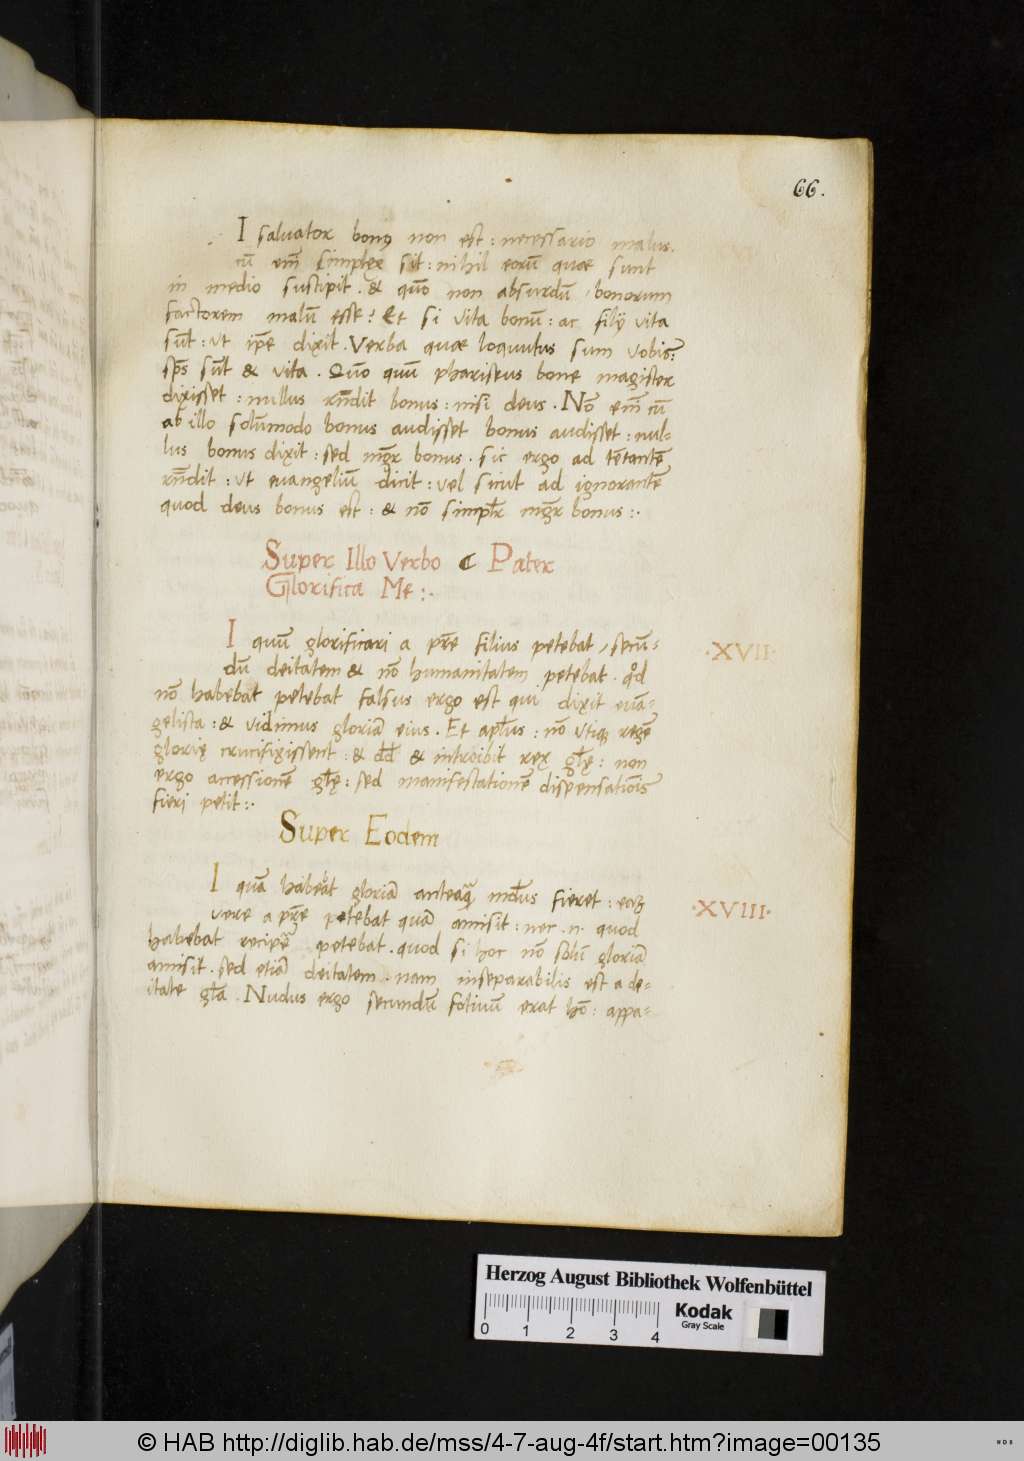 66.
I saluator bonꝰ non est : necessario malus.
cū em̄ simplex sit : nihil eorū quae sunt
in medio suscipit . & quō non absurdū , bonorum
factorem malū esse? Et si vita bonū : ac filij vita
sūt : vt ip̄e dixit . Verba quae loquutus sum vobis :
sp̄s sūt & vita . Quō quū phariseus bone magister
dixisset : nullus rn̄dit bonus : nisi deus . Nō em̄ cū
ab illo solūmodo bonus audisset bonus audisset : nul-
lus bonus dixit : sed mḡr bonus . sic ergo ad tētantē
rn̄dit : vt euangeliū dicit : vel sicut ad ignorantē
quod deus bonus est : & nō simpl̄r mḡr bonus :.
Super Illo Verbo C Pater
Glorifica Me :.
I quū glorificari a pr̄e filius petebat, secū-
dū deitatem & nō humanitatem petebat . qd
nō habebat petebat falsus ergo est qui dixit euā-
gelista : & vidimus gloriā eius . Et apl̄us : nō vtiq; regē
glorię crucifixissent : & dd̄ & introibit rex gl̄ę : non
ergo accessionē gl̄ę : sed manifestationē dispensatiōis
fieri petit :.
·XVII·
Super Eodem
I quā habebat gloriā anteaq̄ mūdus fieret :
vere a pr̄e petebat quā amisit : nec .n. quod
habebat recipe petebat . quod si hoc nō solū gloriā
amisit . sed etiā deitatem . nam inseparabilis est a de-
itate gl̄a . Nudus ergo secundū fotinū erat hō : appa-
·XVIII·
Herzog August Bibliothek Wolfenbüttel
0 1 2 3 4
Kodak
Gray Scale
© HAB http://diglib.hab.de/mss/4-7-aug-4f/start.htm?image=00135